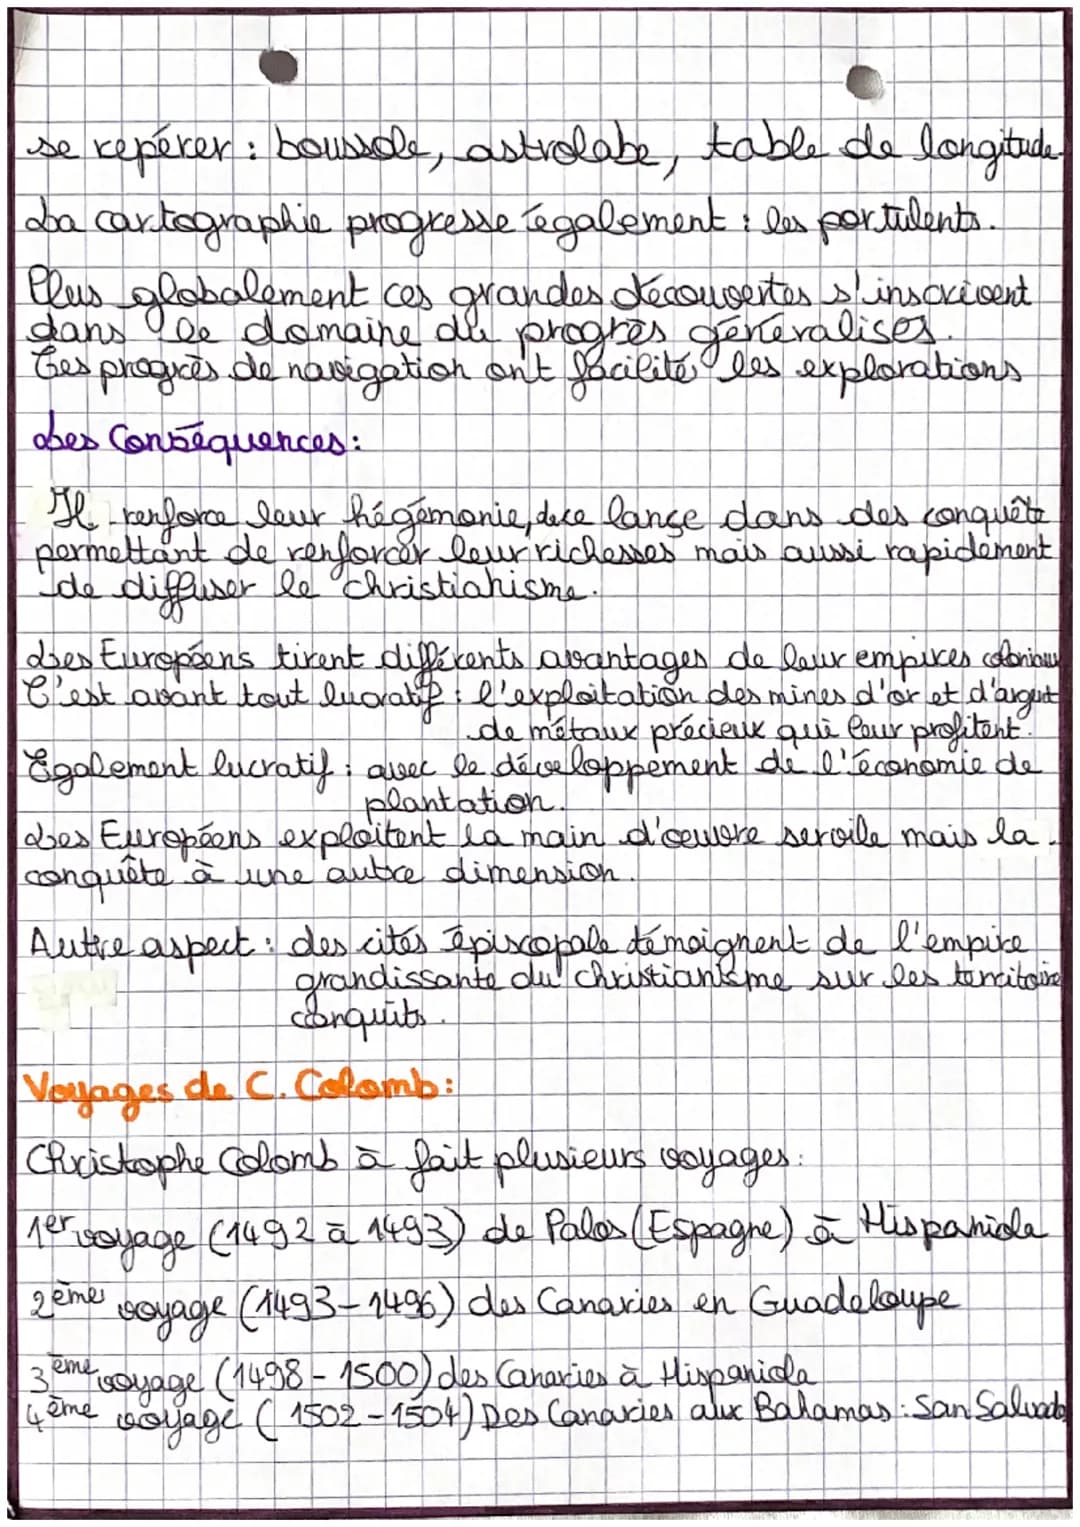 se repérer : boussole, astrolabe, table de longitude.
La cartographie progresse également : les portulents.
Plus globalement ces grandes découvertes s'inscrivent
dans le domaine du progrès généralises.
Ces progrès de navigation ont facilité les explorations
Les Conséquences :
Il renforce leur hégémonie, lance dans des conquêt
permettant de renforcer leur richesses mais aussi rapidement
de diffuser le christianisme.
Les Européens tirent différents avantages de leur empires coloniaux
C'est avant tout lucratif : l'exploitation des mines d'or et d'argent
de métaux précieux qui leur profitent.
Egalement lucratif : avec le développement de l'économie de
plantation.
Les Européens exploitent la main d'œuvre servile mais la
conquête à une autre dimension.
Autre aspect : des cités épiscopale témoignent de l'empire
grandissante du christianisme sur les territoire
conquits.
Voyages de C. Colomb :
Christophe Colomb à fait plusieurs voyages :
1er voyage (1492 à 1493) de Palos (Espagne) à Hispaniola
2ème voyage (1493-1496) des Canaries en Guadeloupe
3ème voyage (1498-1500) des Canaries à Hispaniola
4ème voyage (1502-1504) Des Canaries aux Bahamas : San Salvado